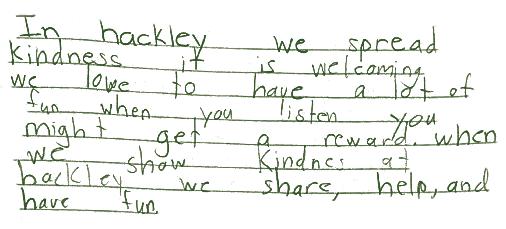 In hackley we spread
kindness it is welcoming
we love to have a lot of
fun when you listen you
might get a reward. when
we show kindnes at
hackley we share, help, and
have fun